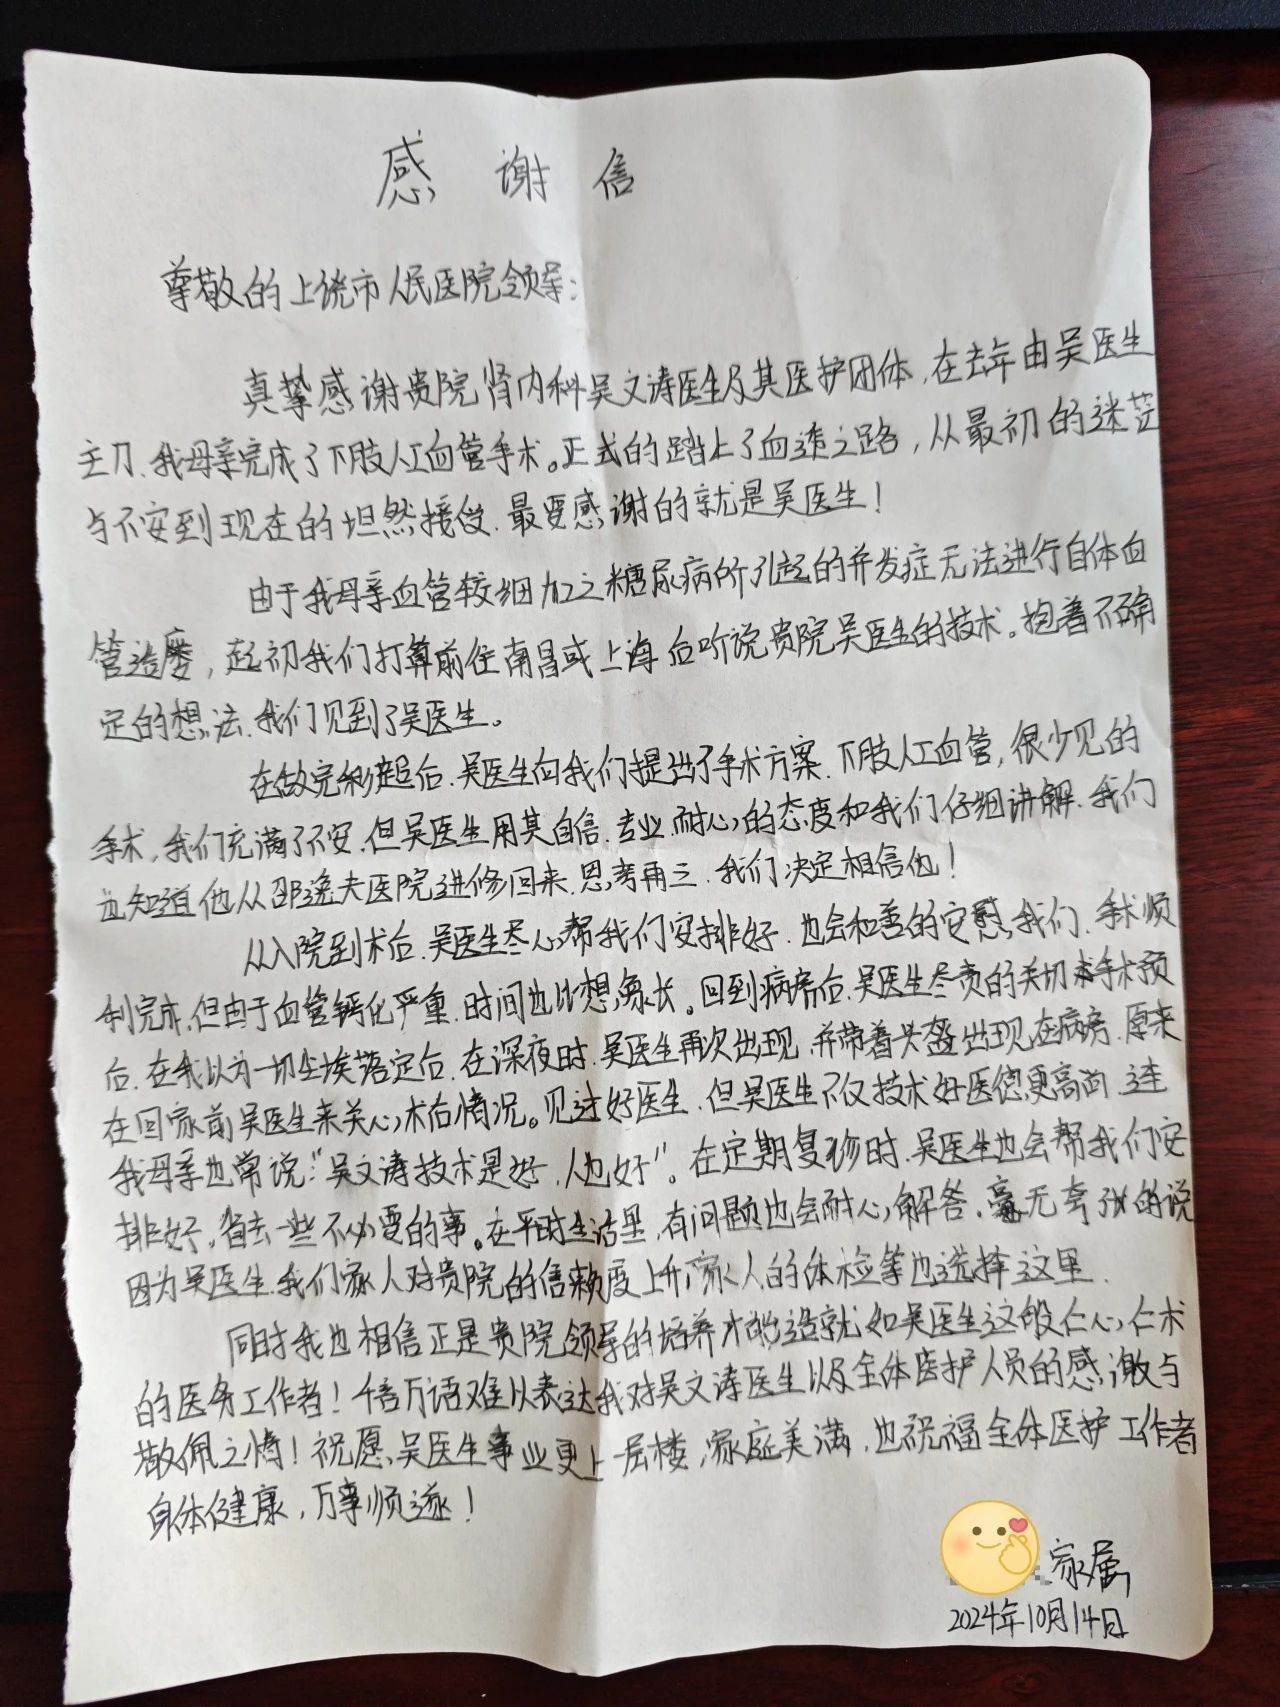 感谢信
尊敬的上饶市人民医院领导：
真挚感谢贵院肾内科吴文涛医生及其医护团体，在去年由吴医生
主刀.我母亲完成了下肢人工血管手术。正式的踏上了血透之路，从最初的迷茫
与不安到现在的坦然接受.最要感谢的就是吴医生！
由于我母亲血管较细加之糖尿病所引起的并发症无法进行自体血
管造瘘，起初我们打算前往南昌或上海后听说贵院吴医生的技术。抱着不确
定的想法.我们见到了吴医生。
在做完彩超后.吴医生向我们提出了手术方案.下肢人工血管，很少见的
手术，我们充满了不安.但吴医生用其自信.专业.耐心的态度和我们仔细讲解.我们
也知道他从邵逸夫医院进修回来.思考再三.我们决定相信他！
从入院到术后.吴医生尽心帮我们安排好.也会和善的安慰我们.手术顺
利完成.但由于血管钙化严重.时间也比想象长。回到病房后.吴医生尽责的关切手术预
后.在我以为一切尘埃落定后.在深夜时.吴医生再次出现.并带着头盔出现在病房.原来
在回家前吴医生来关心术后情况。见过好医生.但吴医生不仅技术好医德更高尚.连
我母亲也常说：“吴文涛技术是好.人也好”。在定期复诊时.吴医生也会帮我们安
排好，省去一些不必要的事。在平时生活里，有问题也会耐心解答.毫无夸张的说
因为吴医生.我们家人对贵院的信赖度上升，家人的体检等也选择这里.
同时我也相信正是贵院领导的培养才能造就如吴医生这般仁心仁术
的医务工作者！千言万语难以表达我对吴文涛医生以及全体医护人员的感激与
敬佩之情！祝愿吴医生事业更上一层楼，家庭美满，也祝福全体医护工作者
身体健康，万事顺遂！
家属
2024年10月14日